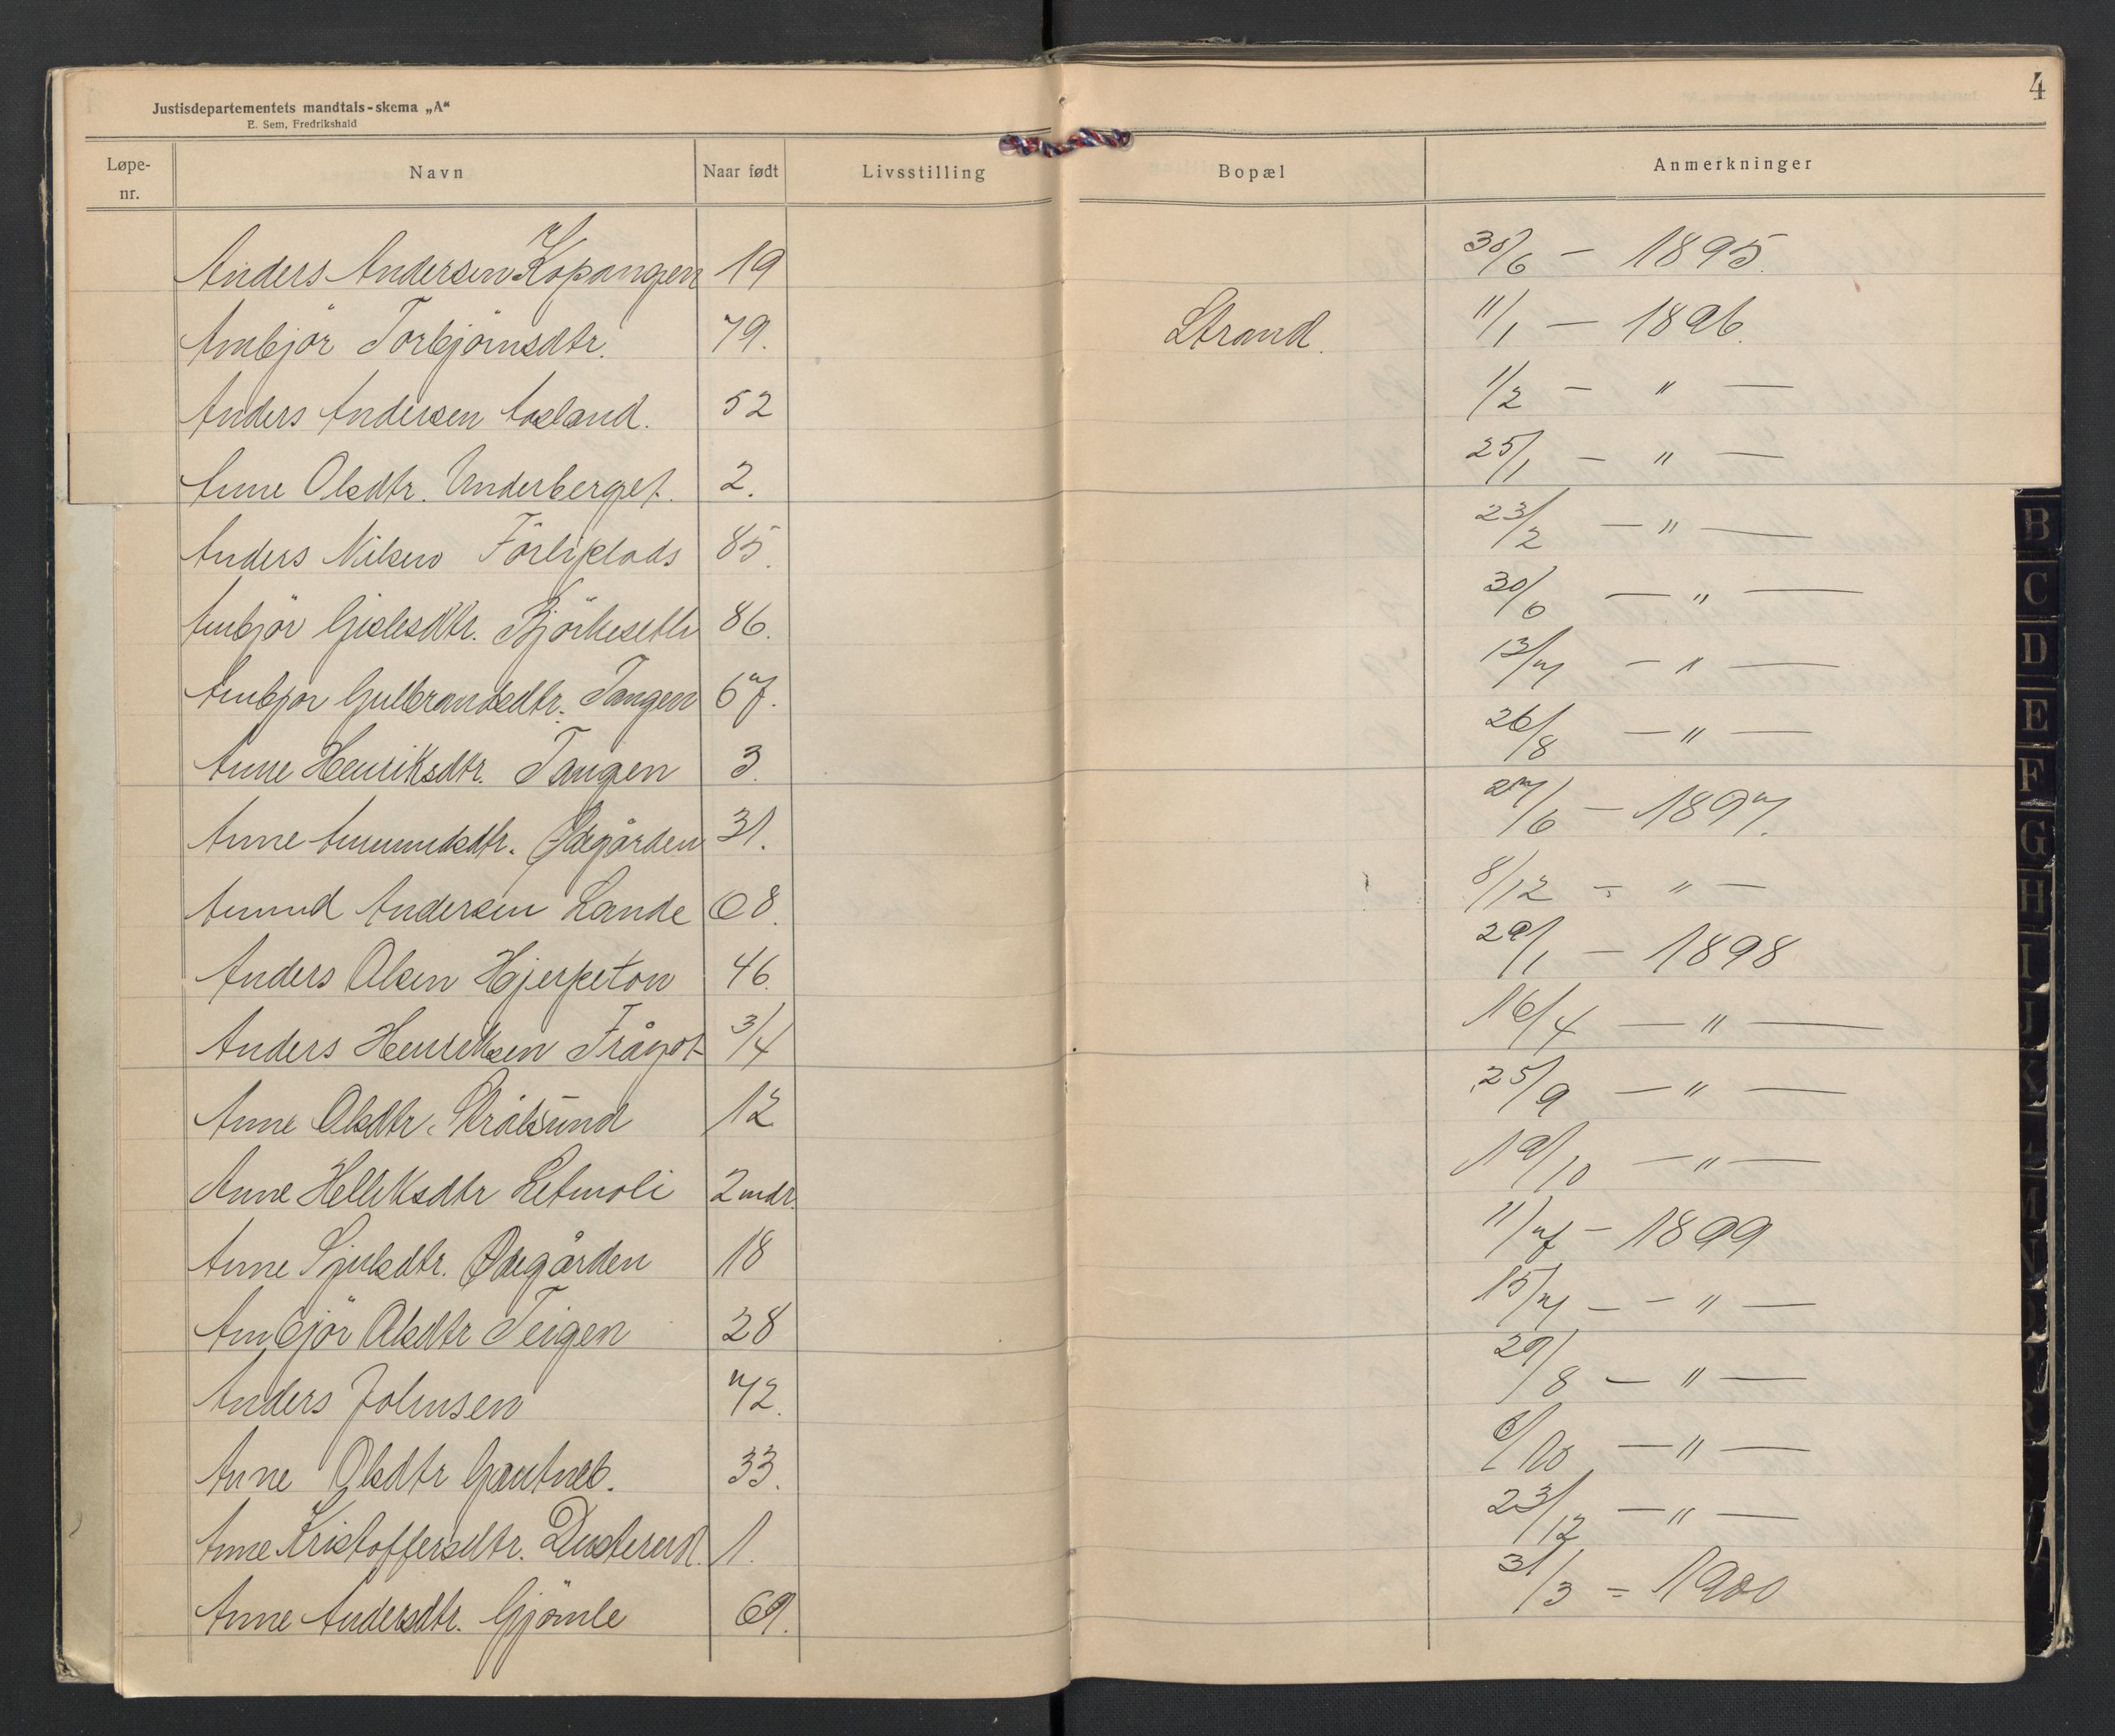 4
Justisdepartementets mandtals-skema „A“
E. Sem, Fredrikshald
Løpe-nr. Navn Naar født Livsstilling Bopæl Anmerkninger
Anders Andersen Kopangen 19 30/6 — 1895.
Ambjör Torbjörnsdtr. 79. Strand. 11/1 — 1896.
Anders Andersen Aasland. 52 1/2 — " —
Anne Olsdtr. Underberget. 2. 25/1 — " —
Anders Nilsen 85. 23/2 — " —
Ambjör Gislesdtr. Björkesettr 86. 30/6 — " —
Ambjor Gulbrandsdtr. Tangen 67. 13/7 — " —
Anne Henriksdtr. Tangen 3. 26/8 — " —
Anne Amundsdtr. Ødegården 31. 27/6 — 1897.
Amund Andersen Lande 68. 8/12 — " —
Anders Olsen 46. 29/1 — 1898
Anders Henriksen Frågot 3/4 16/4 — " —
Anne Olsdtr. Strålsund 12 25/9 — " —
Anne Helliksdtr 2 mdr. 19/10 — " —
Anne Sjulsdtr. Ødegården 18 11/7 — 1899
Ambjör Olsdtr Teigen 28 15/7 — — " —
Anders Johnsen 72. 29/8 — " —
Anne Olsdtr Gautneb. 33. 6/10 — " —
Anne Kristoffersdtr. 1. 23/12 — " —
Anne Andersdtr. Gjömle 69. 31/3 = 1900
B
C
D
E
F
G
H
I
J
K
L
M
N